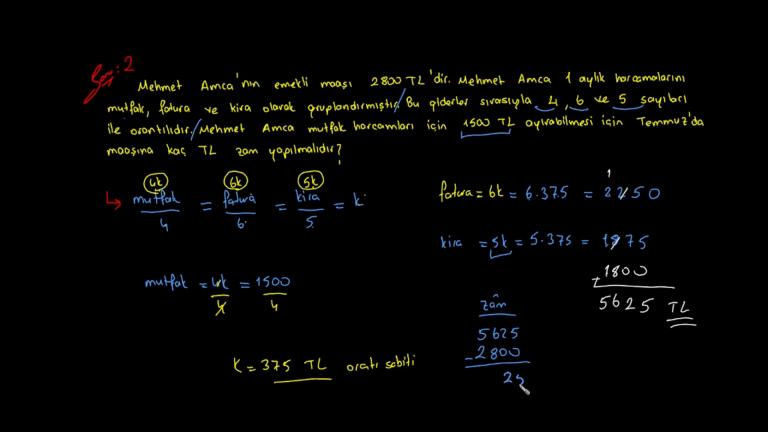 Soru: 2
Mehmet Amca'nın emekli maaşı 2800 TL'dir. Mehmet Amca 1 aylık harcamalarını
mutfak, fatura ve kira olarak gruplandırmıştır. Bu giderler sırasıyla 4, 6 ve 5 sayıları
ile orantılıdır. Mehmet Amca mutfak harcamları için 1500 TL ayırabilmesi için Temmuz'da
maaşına kaç TL zam yapılmalıdır?
4k 6k 5k
mutfak/4 = fatura/6 = kira/5 = k
fatura = 6k = 6.375 = 2250
kira = 5k = 5.375 = 1875
1800
5625 TL
mutfak = 4k/4 = 1500/4
k = 375 TL orantı sabiti
zam
5625
-2800